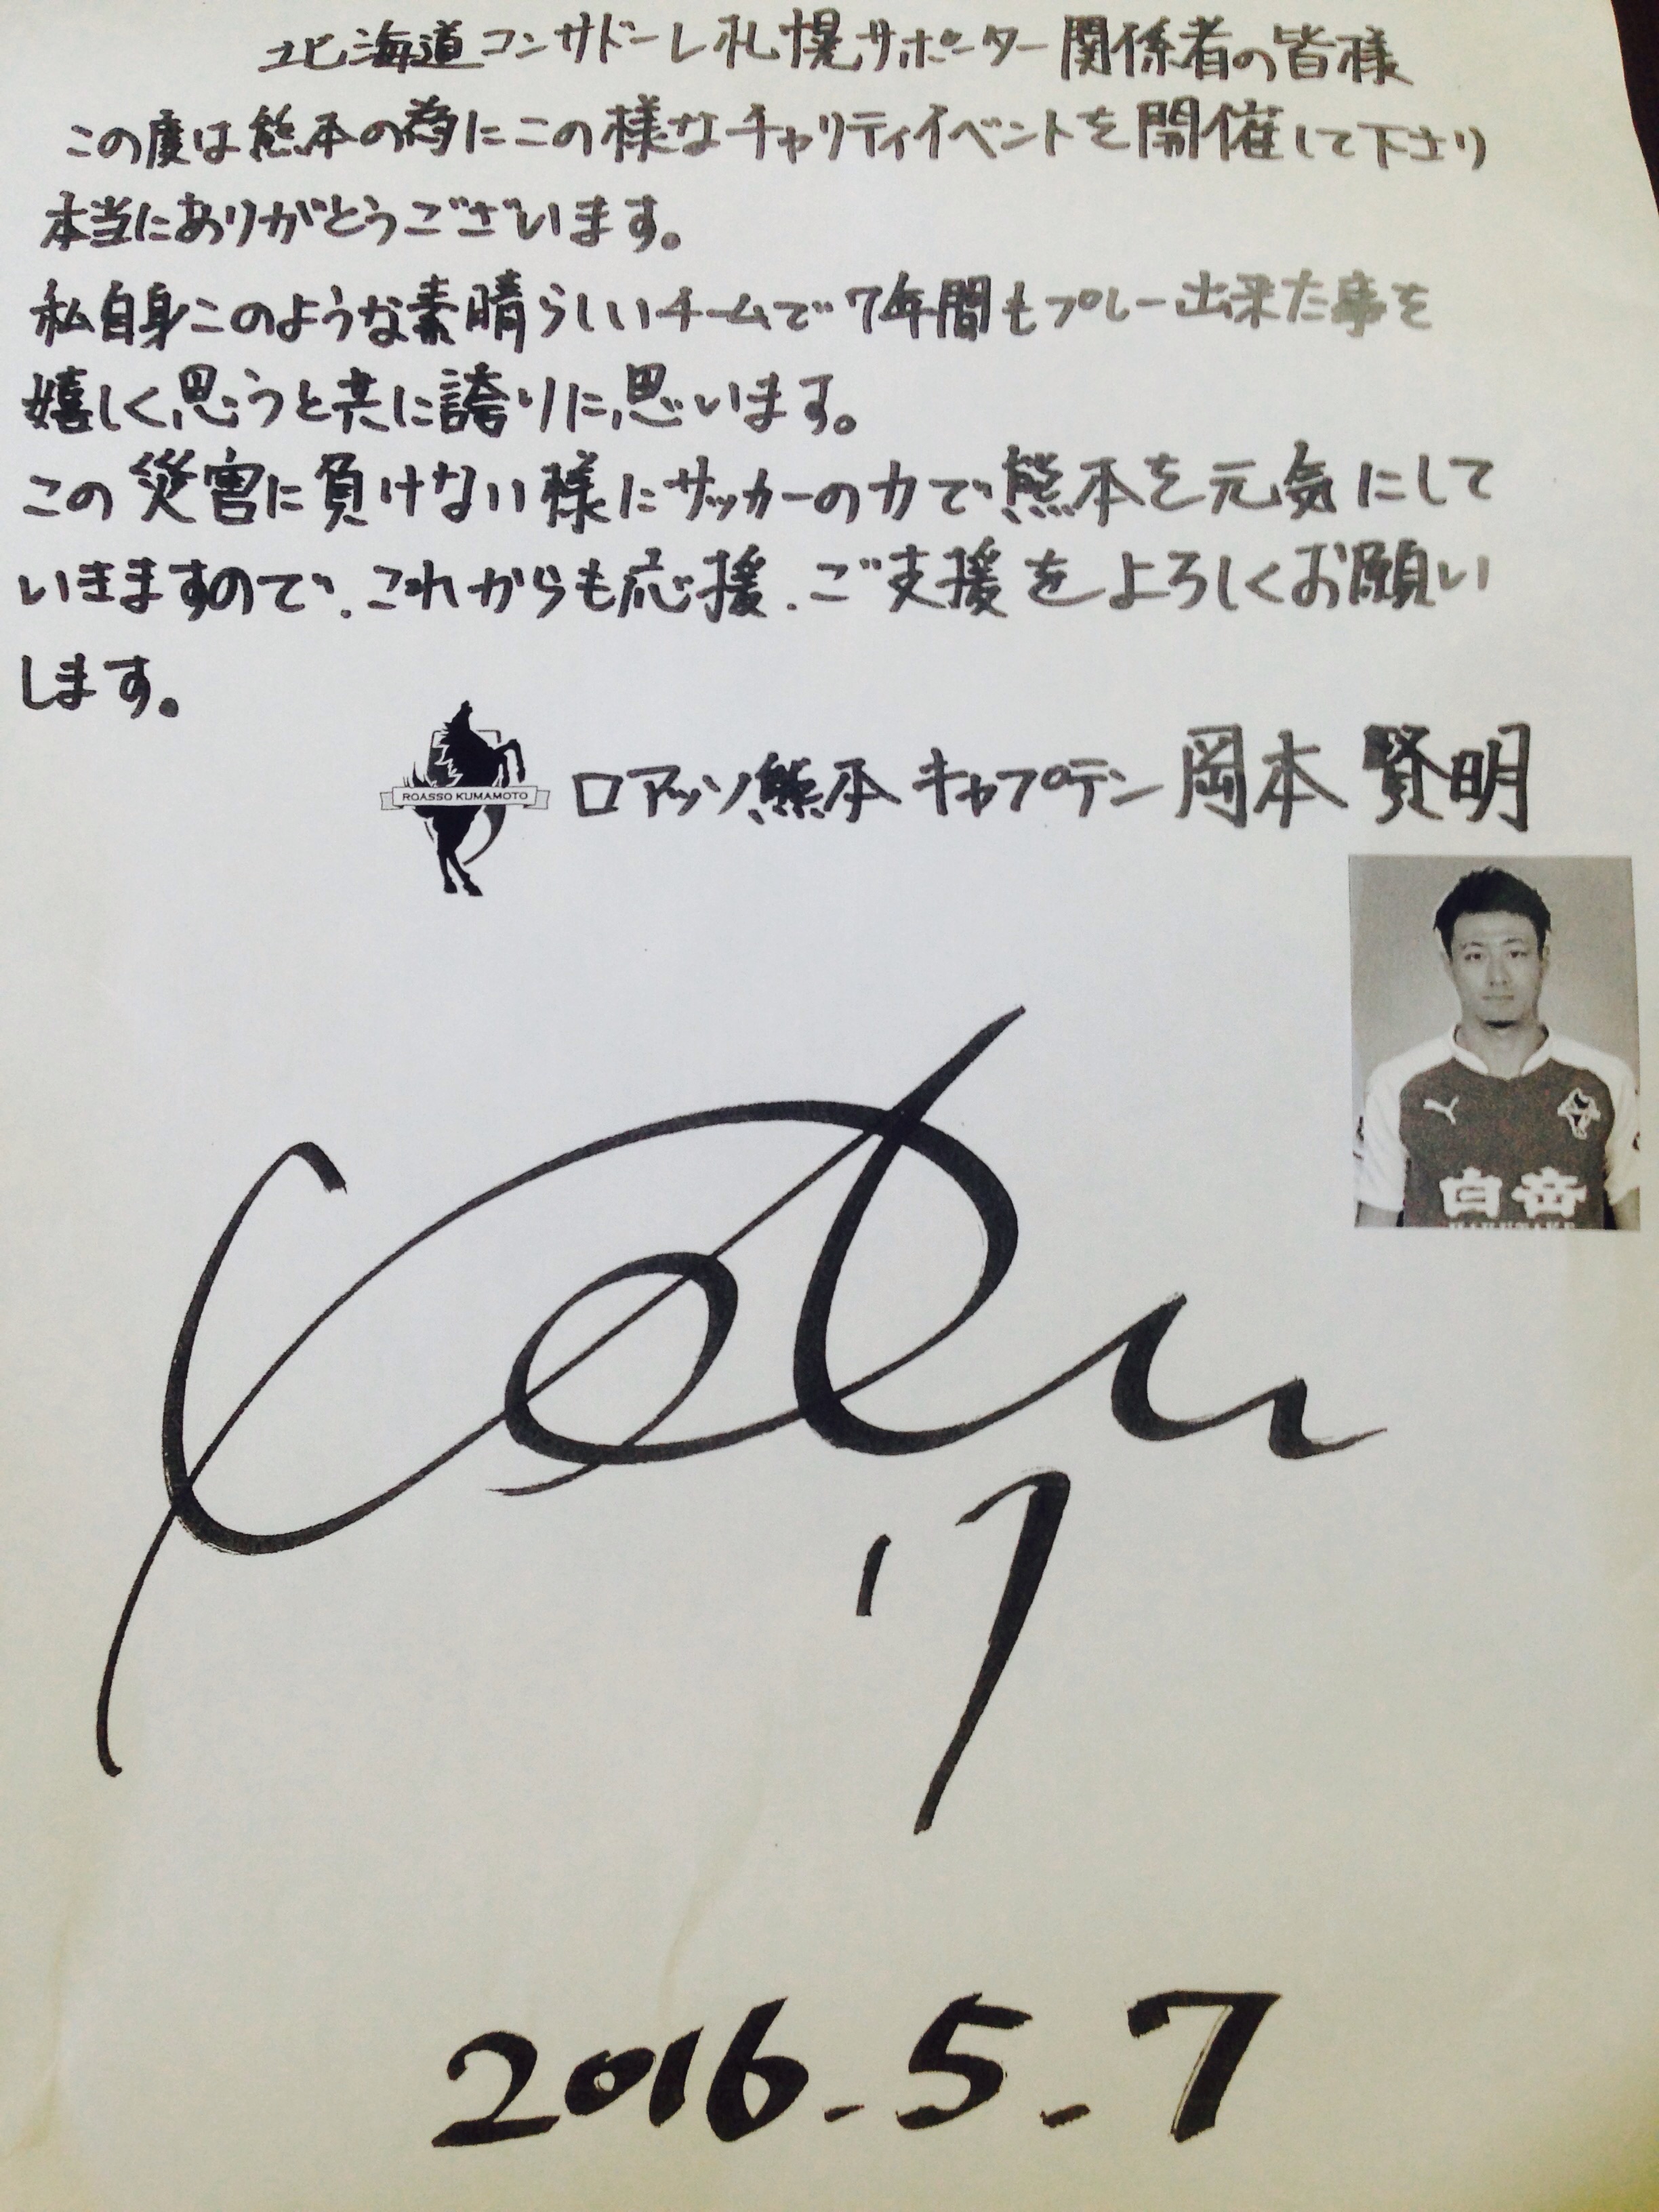 北海道コンサドーレ札幌サポーター関係者の皆様
この度は熊本の為にこの様なチャリティイベントを開催して下さり
本当にありがとうございます。
私自身このような素晴らしいチームで7年間もプレー出来た事を
嬉しく思うと共に誇りに思います。
この災害に負けない様にサッカーの力で熊本を元気にして
いきますので、これからも応援、ご支援をよろしくお願い
します。
ROASSO KUMAMOTO
ロアッソ熊本 キャプテン 岡本 賢明
白岳
17
2016.5.7